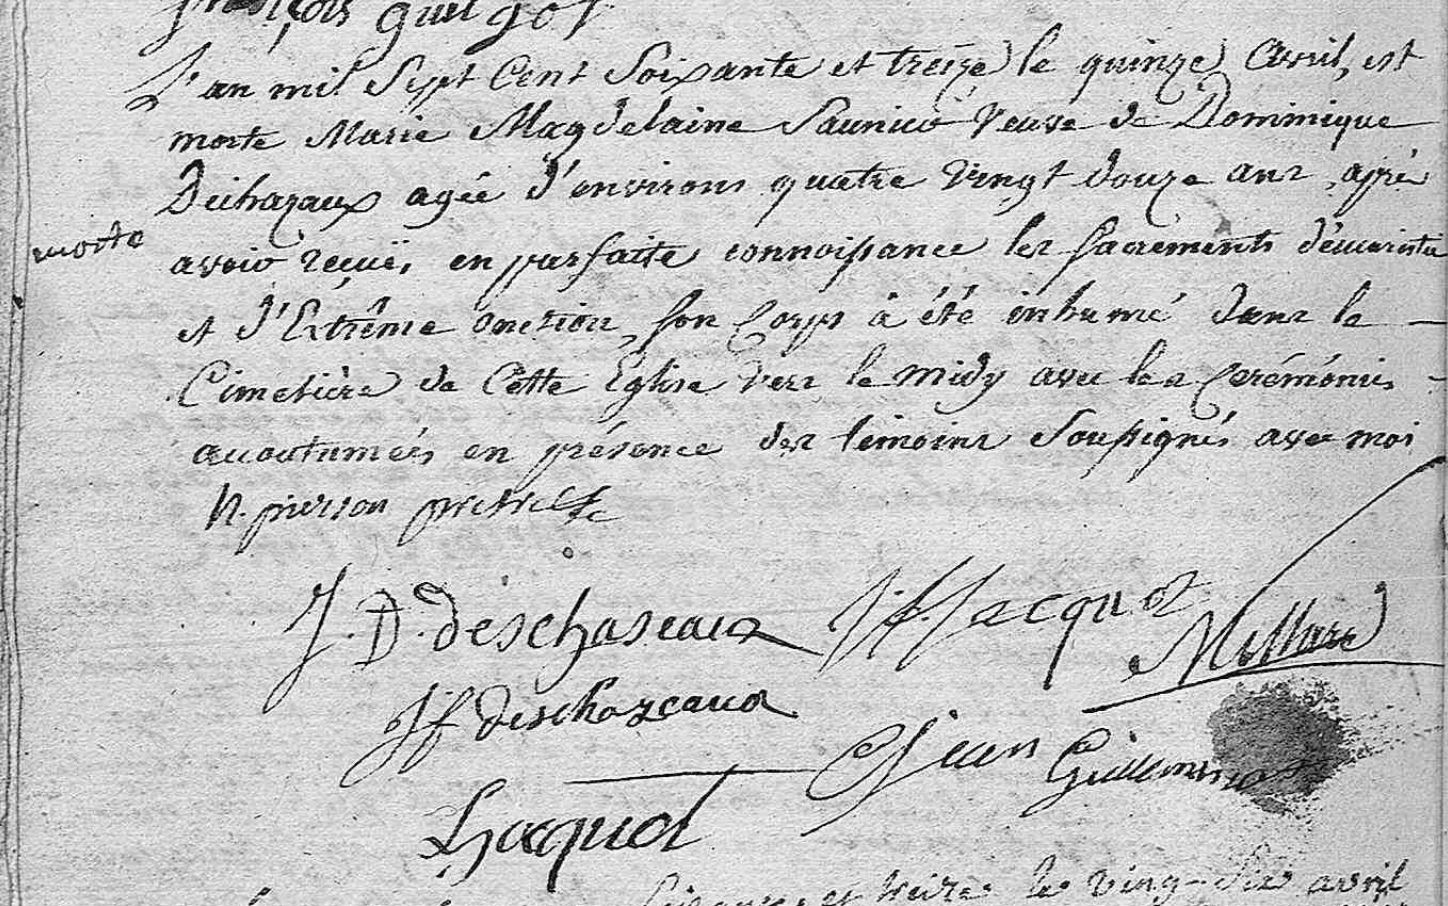 françois guilgot
L'an mil Sept Cent Soixante et treize le quinze Avril, est
morte Marie Magdelaine Saunier Veuve de Dominique
Dechazaux agée d'environs quatre Vingt douze ans, après
morte
avoir reçuë, en parfaite connoissance les sacrements d'eucaristie
et d'Extrême onction, son Corps à été inhumé dans le
Cimetière de Cette Eglise vers le midy avec les Cerémonies
accoutumées en présence des temoins Soussignés avec moi
N. pierson pretre
J. D. deschaseaux J. f. Jacquot Millard
J f deschazeaux
Jean Guillemin
Hacquot
et treize le Vingt-Six avril